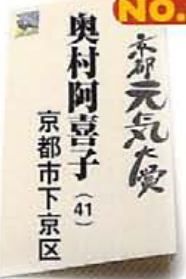 No.
京都元気大賞
奥村阿喜子(41)
京都市下京区